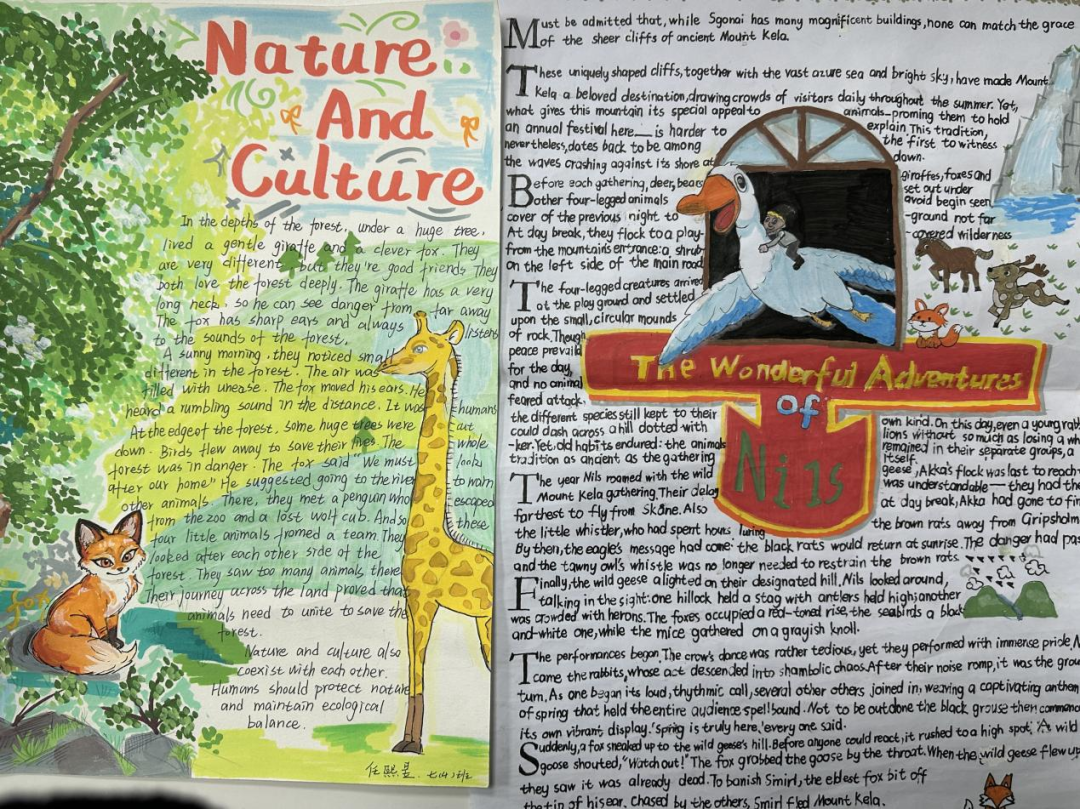 Nature
And
Culture
In the depths of the forest, under a huge tree,
lived a gentle giraffe and a clever fox. They
are very different, but they're good friends They
both love the forest deeply. The giraffe has a very
long neck, so he can see danger from far away
The fox has sharp ears and always listens
to the sounds of the forest.
A sunny morning, they noticed smoth
different in the forest. The air was
filled with unease. The fox moved his ears. He
heard a rumbling sound in the distance. It was humans
At the edge of the forest, some huge trees were cut
down. Birds flew away to save their lives. The whole
forest was in danger. The fox said "We must look
after our home" He suggested going to the river to warn
other animals. There, they met a penguin who escaped
from the zoo and a lost wolf cub. And so these
four little animals fromed a team. They
looked after each other side of the
forest. They saw too many animals, there
Their journey across the land proved that
animals need to unite to save the
forest.
Nature and culture also
coexist with each other.
Humans should protect nature
and maintain ecological
balance.
fox
任熙
Must be admitted that, while Sgonai has many magnificent buildings, none can match the grace
of the sheer cliffs of ancient Mount Kela.
These uniquely shaped cliffs, together with the vast azure sea and bright sky, have made Mount
Kela a beloved destination, drawing crowds of visitors daily throughout the summer. Yet,
what gives this mountain its special appeal to animals-proming them to hold
an annual festival here— is harder to explain This tradition,
nevertheless, dates back to be among the first to witness
the waves crashing against its shore at dawn.
Before each gathering, deer, bears giraffes, foxes and
other four-legged animals set out under
cover of the previous night to avoid begin seen
At day break, they flock to a play-ground not far
from the mountains entrance: a shrub-covered wilderness
on the left side of the main road
The four-legged creatures arrived
at the play ground and settled
upon the small, circular mounds
of rock. Though
peace prevaild
for the day,
and no animal
feared attack,
the different species still kept to their own kind. On this day, even a young rab
could dash across a hill dotted with lions without so much as losing a wh
-ker. Yet, old habits endured: the animals remained in their separate groups, a
tradition as ancient as the gathering itself.
The year Nils roamed with the wild geese, Akka's flock was last to reach
Mount Kela gathering. Their delay was understandable— they had the
farthest to fly from Skåne. Also at day break, Akka had gone to fin
the little whistler, who had spent hours luring the brown rats away from Gripsholm
By then, the eagle's message had come: the black rats would return at sunrise. The danger had pas
and the tawny owl's whistle was no longer needed to restrain the brown rats
Finally, the wild geese alighted on their designated hill. Nils looked around,
talking in the sight: one hillock held a stag with antlers held high; another
was crowded with herons. The foxes occupied a red-toned rise, the seabirds a black
and-white one, while the mice gathered on a grayish knoll.
The performances began. The crow's dance was rather tedious, yet they performed with immense pride. N
came the rabbits, whose act descended into shambolic chaos. After their noise romp, it was the grou
turn. As one began its loud, thythmic call, several other others joined in, weaving a captivating anthem
of spring that held the entire audience spellbound. Not to be outdone the black grouse then comman
its own vibrant display. 'Spring is truly here,' every one said.
Suddenly, a fox sneaked up to the wild geese's hill. Before anyone could react, it rushed to a high spot. A wild
goose shouted, "Watch out!" The fox grabbed the goose by the throat. When the wild geese flew up
they saw it was already dead. To banish Smirl, the eldest fox bit off
the tip of his ear. Chased by the others, Smirl fled Mount Kela.
The Wonderful Adventures
of
Nils